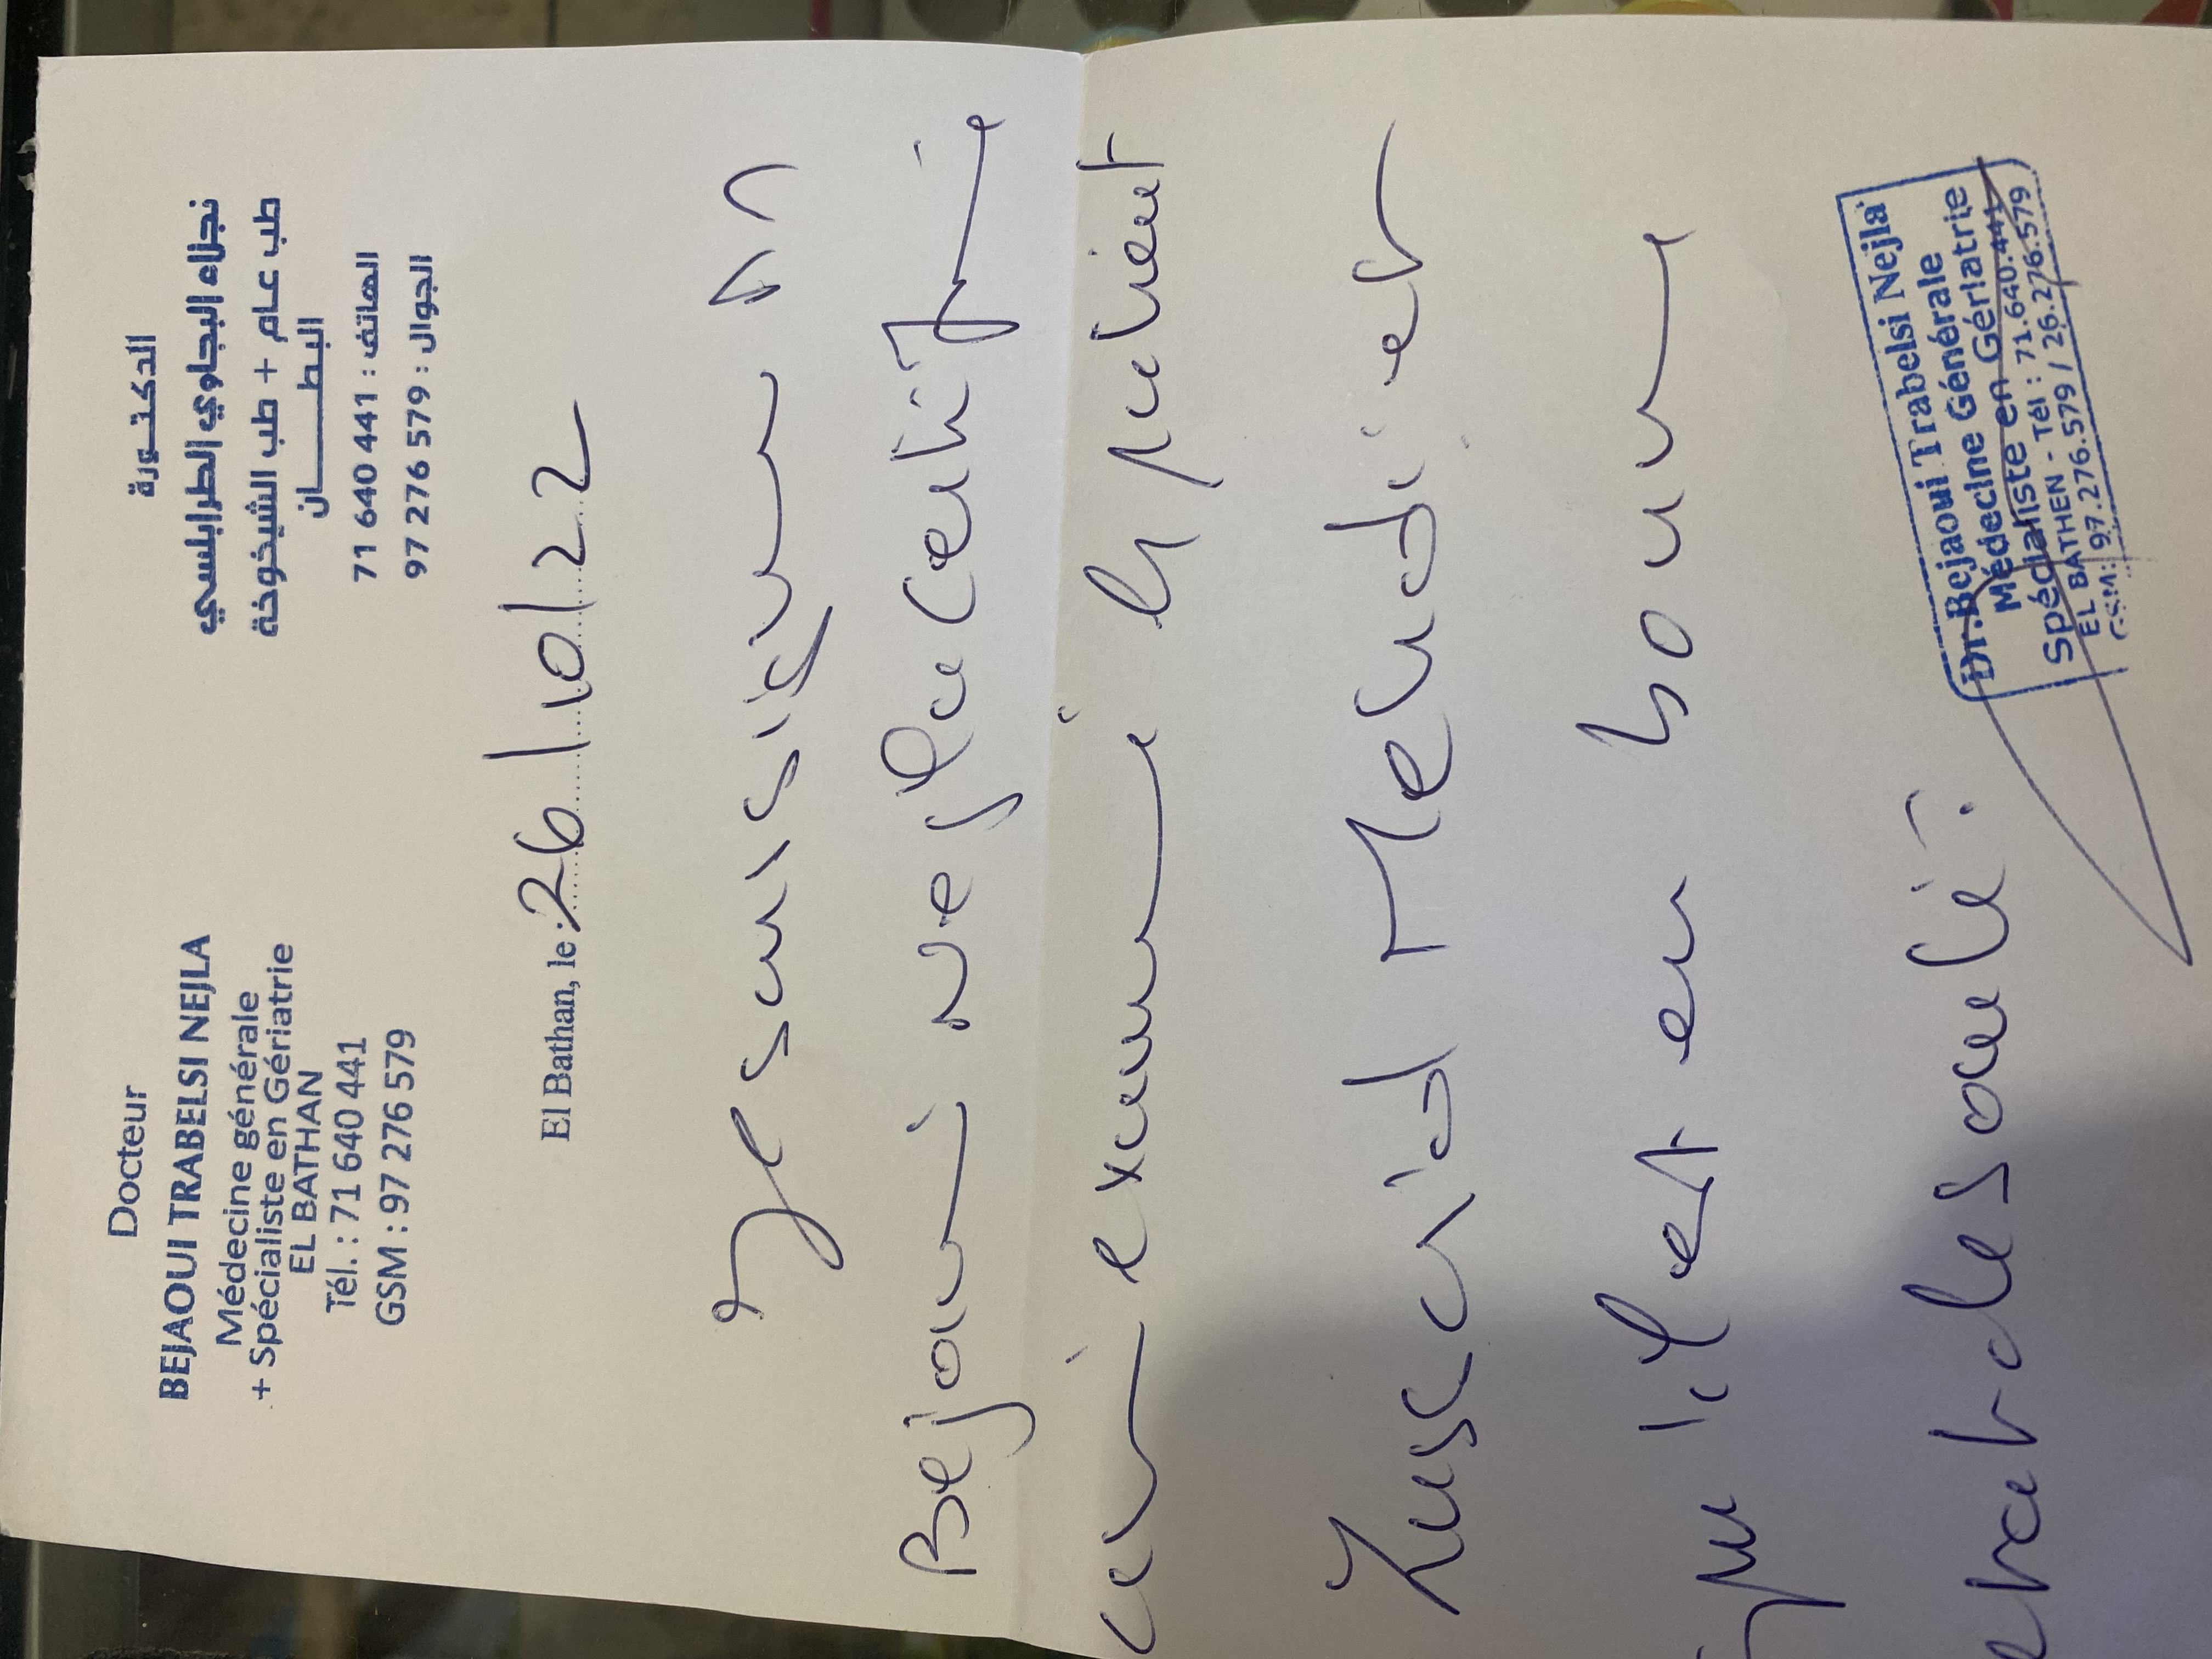 Docteur
BEJAOUI TRABELSI NEJLA
Médecine générale
+ Spécialiste en Gériatrie
EL BATHAN
Tél. : 71 640 441
GSM : 97 276 579
الدكتــورة
نجلاء البجاوي الطرابلسي
طب عـام + طب الشيخوخة
البطــــــان
الهاتف : 441 640 71
الجوال : 579 276 97
El Bathan, le : 26/10/22
Je soussigné Dr
Bejaoui Nejla certifie
avoir examiné le patient
Mehdi et
qu'il est en bonne
état de santé.
Dr.Bejaoui Trabelsi Nejla
Médecine Générale
Spécialiste en Gériatrie
EL BATHEN - Tél : 71.640.441
GSM: 97.276.579 / 26.276.579